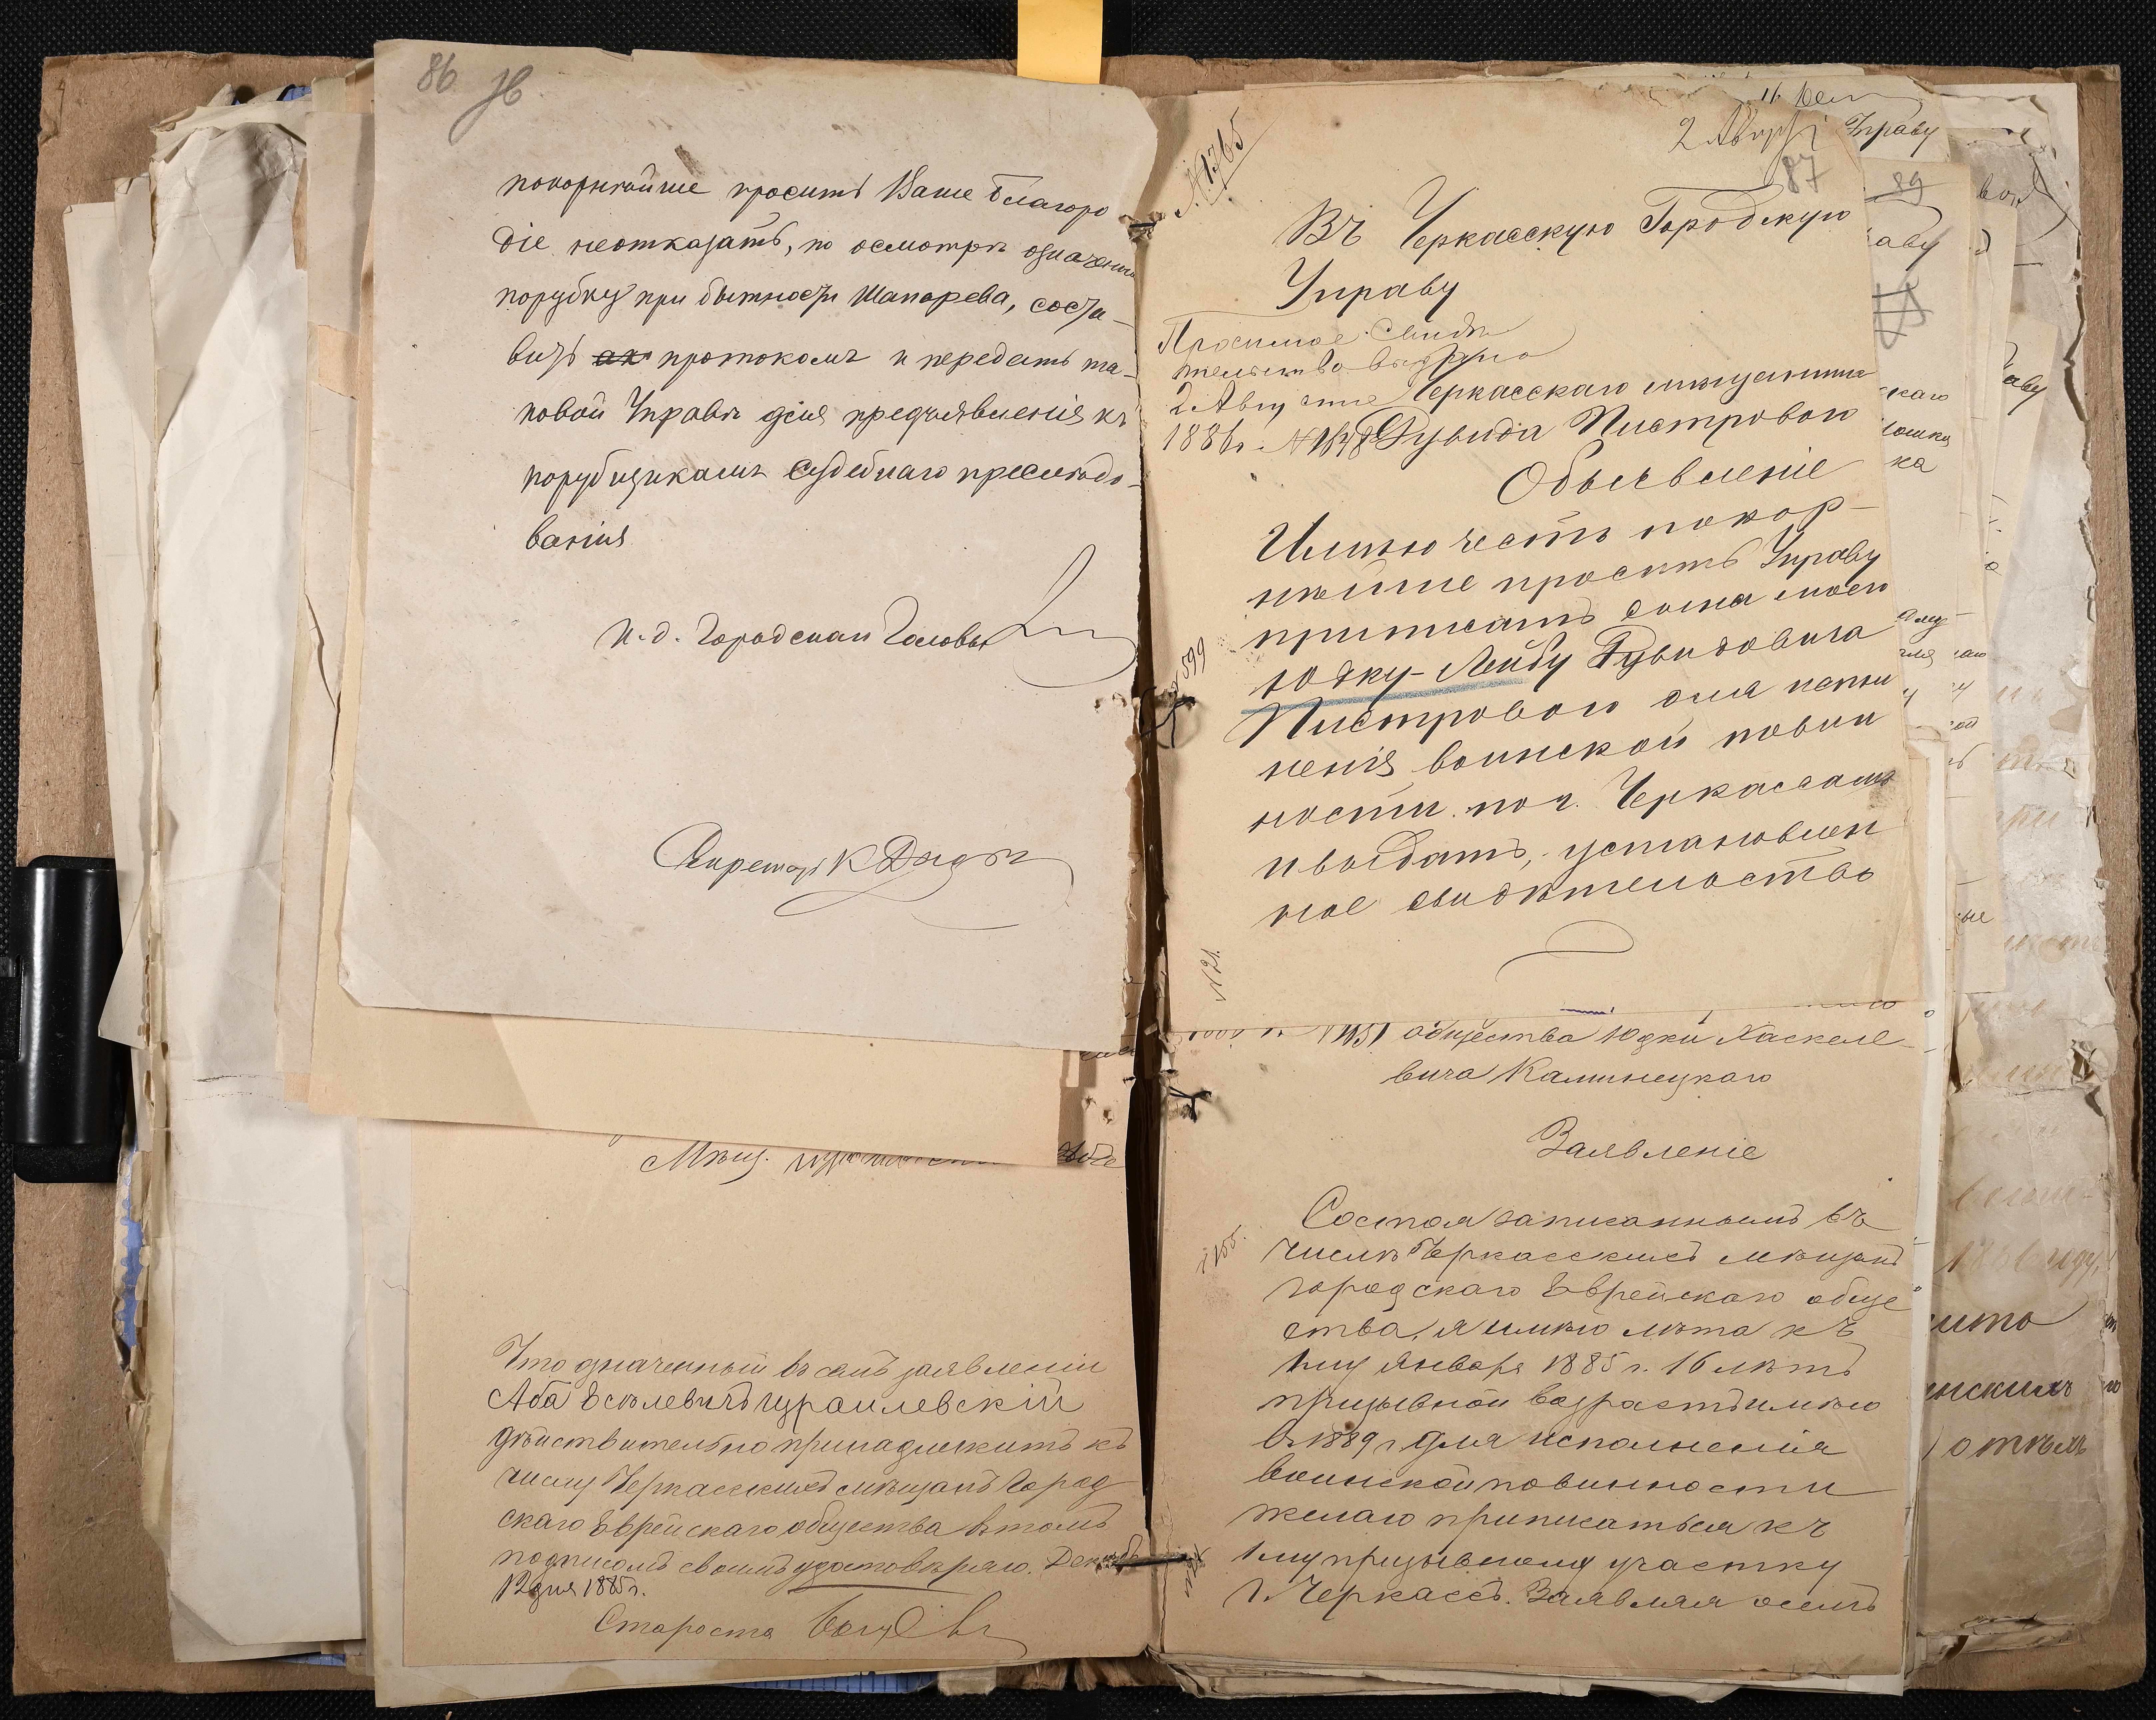 86
покорнѣйше просить Ваше Благоро
діе неотказать, по осмотрѣ означенн
порубку при бытности Шапарева, соста-
вить протоколъ и передать та-
ковой Управѣ для предъявленія къ
порубщикамъ Судебнаго преслѣдо-
ванія
И. д. Городскаи Головы
Секретарь К
Мѣщ.
Что означенный въ семъ заявленіи
Аба Еселевичъ Израилевскій
дѣйствительно принадлежитъ къ
числу Черкасскихъ мѣщанъ Город
скаго Еврейскаго общества въ томъ
подписомъ своимъ удостовѣряю. Декабр
12 дня 1885 г.
Староста
№ 1765
2 Августа
87
Въ Черкасскую Городскую
Управу
Просимое свидѣ
тельство выдано
2 Августа
1886 г. №
Черкасскаго мѣщанина
Рувида Пистроваго
Объявленіе
Имѣю честь покор-
нѣйше просить Управу
приписать сына моего
Юдку-Лейбу Рувидовича
Пистроваго для испол
ненія воинской повин
ности по г. Черкассамъ
и выдать, установлен
ное свидѣтельство
№ 599
№ 21.
№ 1451 общества Юдки Хаскеле-
вича Калинецкаго
Заявленіе
Состоя записаннымъ въ
числѣ Черкасскихъ мѣщанъ
городскаго Еврейскаго обще
ства, я имѣю лѣта къ
1му Января 1885 г. 16 лѣтъ
призывной возрастъ имѣю
въ 1889 г. для исполненія
воинской повинности
желаю приписаться къ
1му призывному участку
г. Черкассъ. Заявляя о семъ
Управу
89
аву
каго
ка
аву